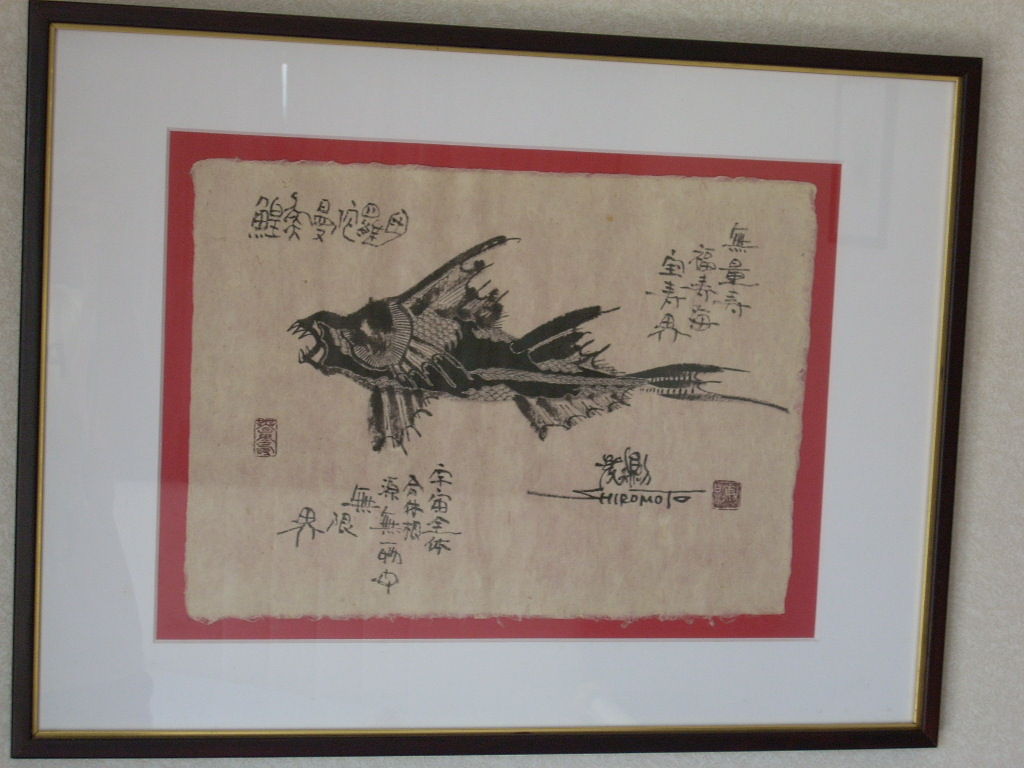 無量寿
福寿海
宝寿界
曼陀羅
宇宙全体
合体根
源無一物中
無
限
界
SHIROMOTO